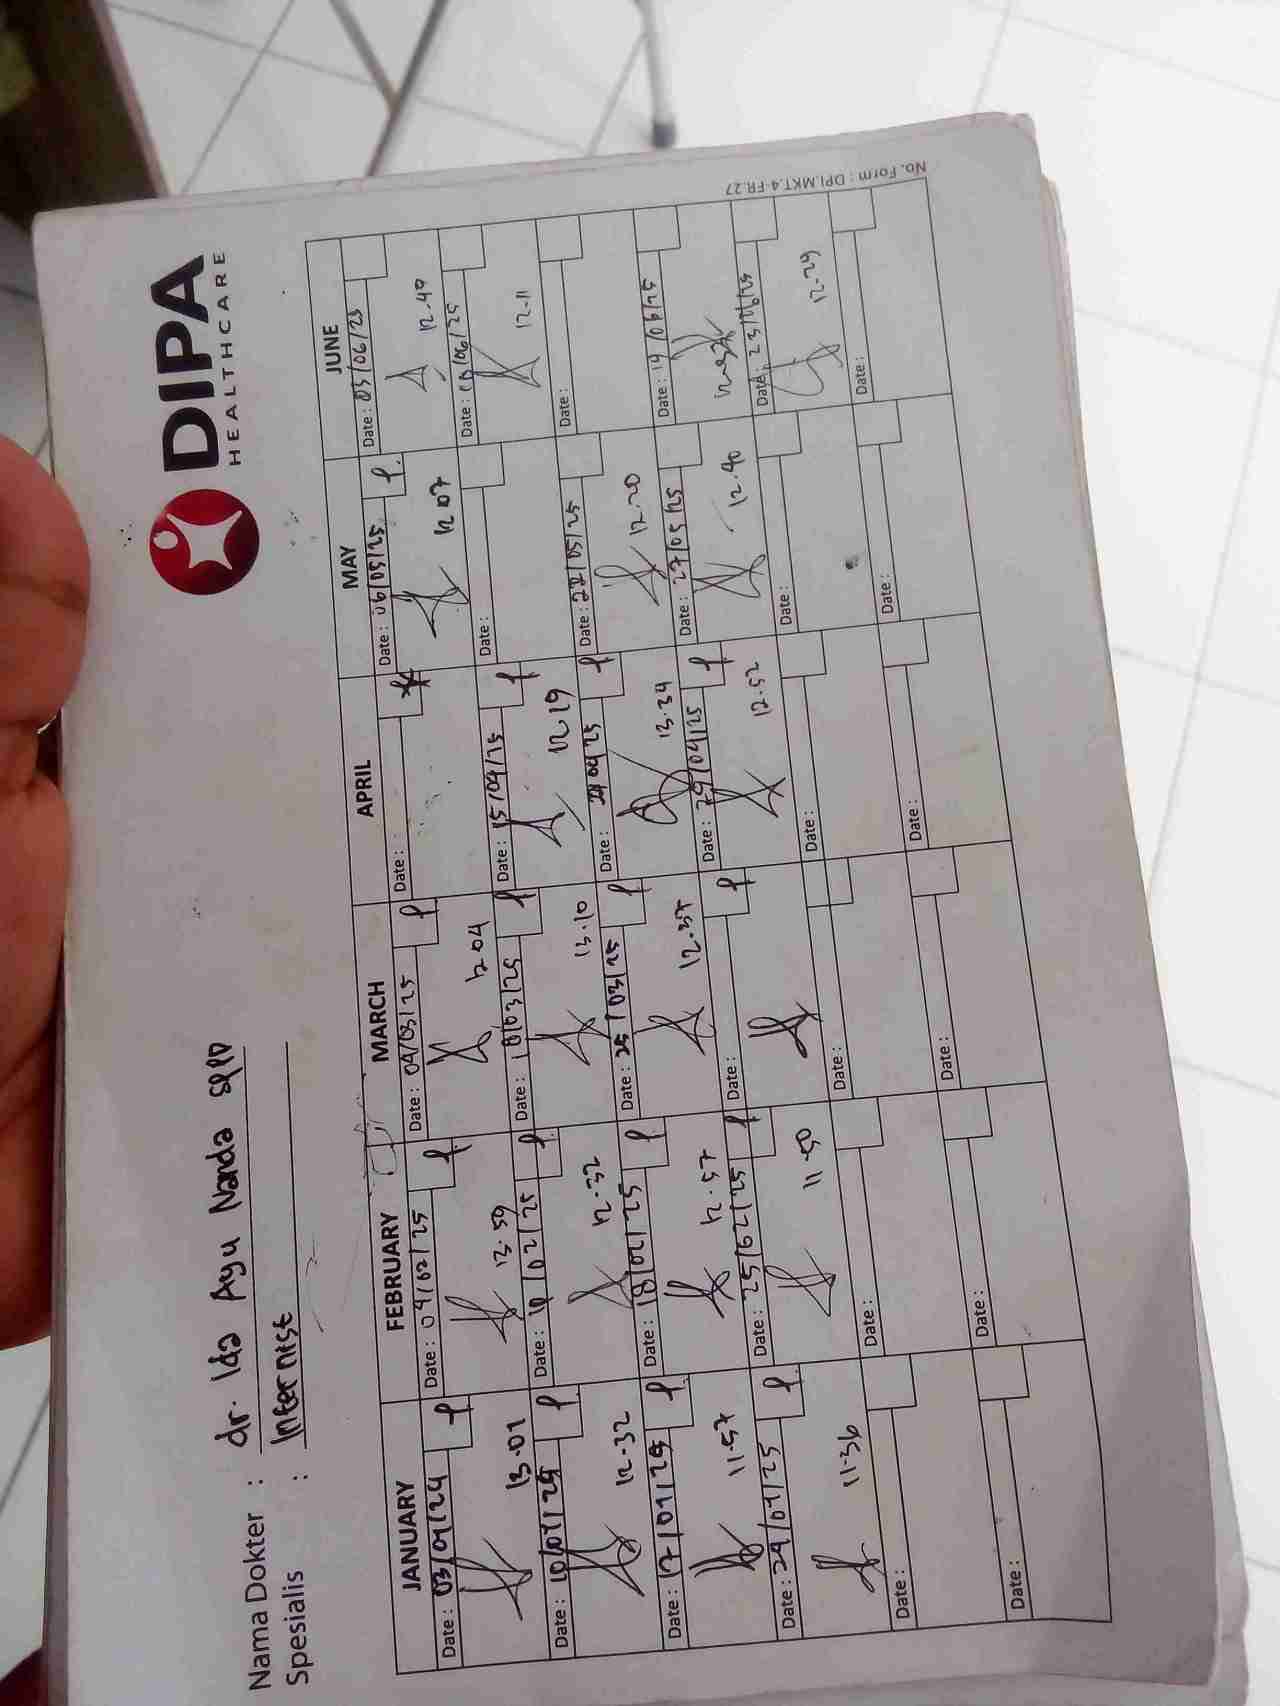 DIPA
HEALTHCARE
Nama Dokter : dr. Ida Ayu Nanda SpPD
Spesialis : Internist
JANUARY FEBRUARY MARCH APRIL MAY JUNE
Date: 03/01/24 Date: 04/02/25 Date: 04/03/25 Date: Date: 06/05/25 Date: 03/06/25
13.01 13.59 12.04 12.07 12.40
Date: 10/01/25 Date: 10/02/25 Date: 18/03/25 Date: 15/04/25 Date: Date: 10/06/25
12.32 12.32 13.10 12.19 12.11
Date: 17/01/25 Date: 18/02/25 Date: 25/03/25 Date: Date: 22/05/25 Date:
11.57 12.57 12.37 13.34 12.20
Date: 24/01/25 Date: 25/02/25 Date: Date: 29/04/25 Date: 27/05/25 Date: 19/06/25
11.36 11.50 12.52 12.40
Date: Date: Date: Date: Date: Date: 23/06/25
12.29
Date: Date: Date: Date: Date: Date:
No. Form : DPI.MKT.4-FR.27